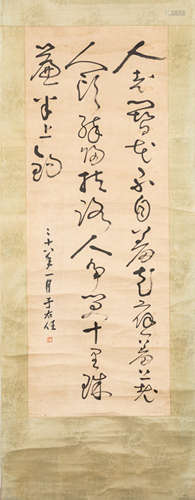 人老簪花不自羞花應羞上老
人頭醉歸扶路人爭笑十里珠
簾半上鉤
三十八年一月 于右任